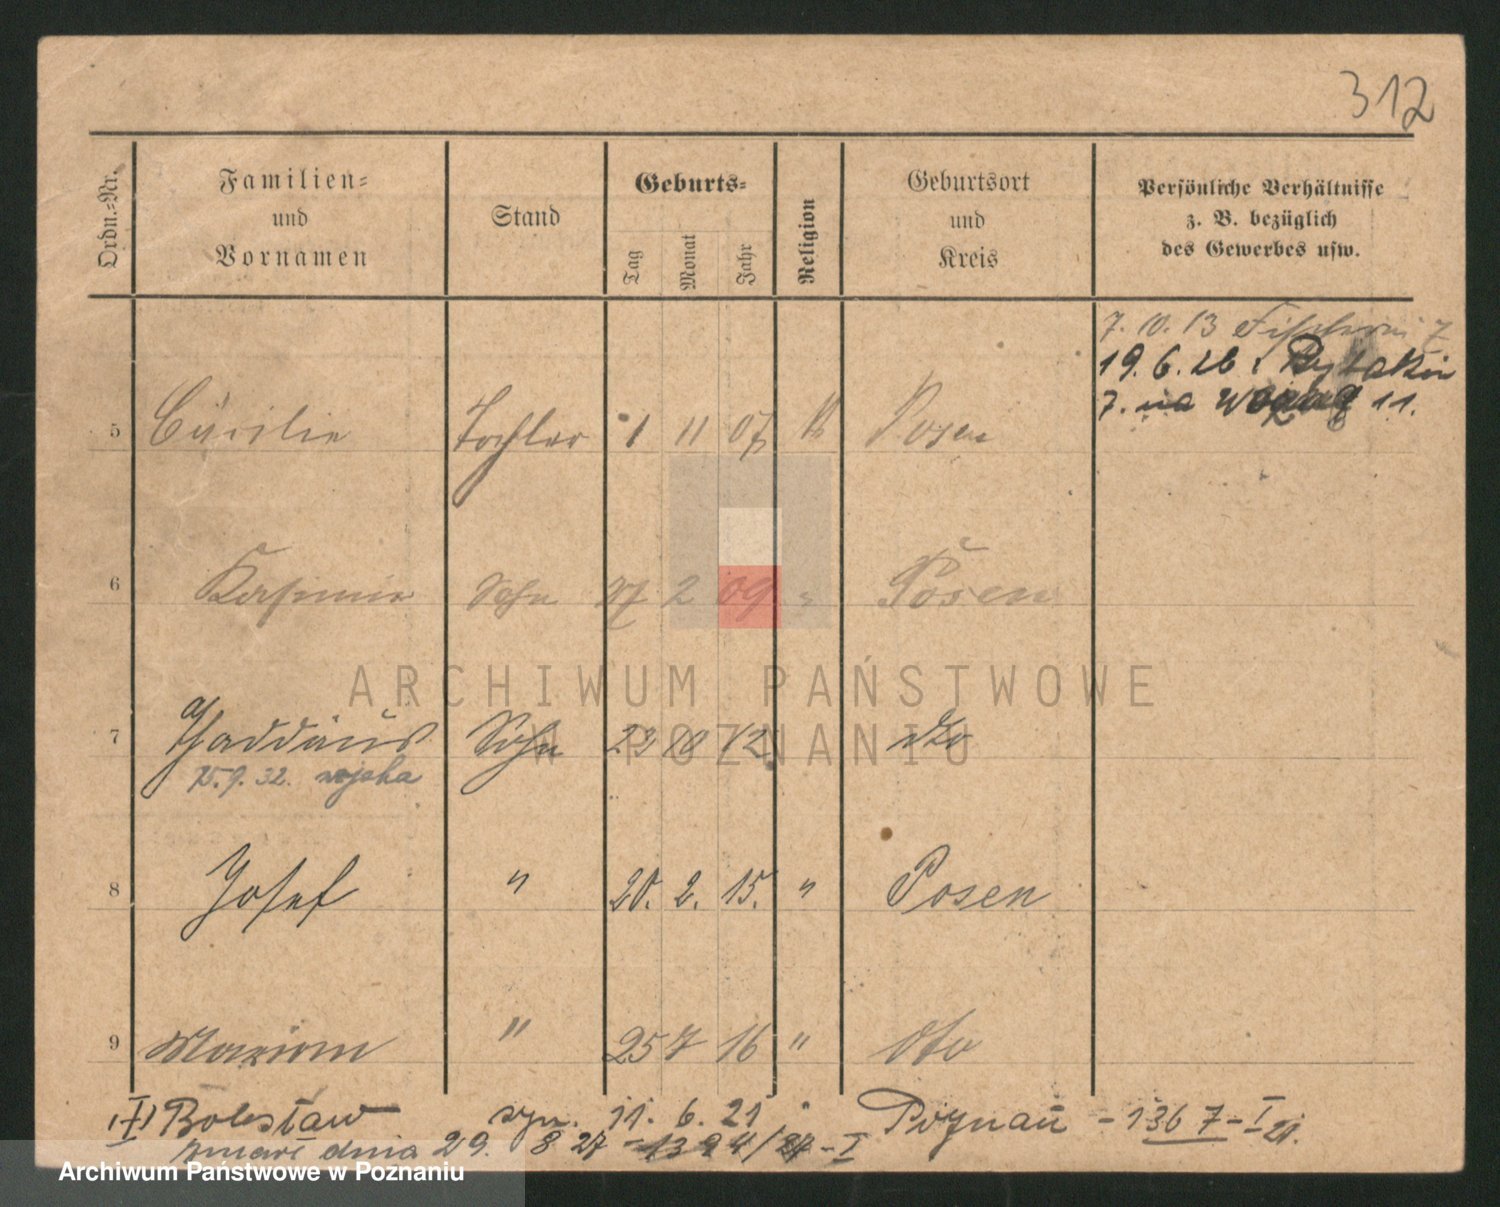 312
Ordn.-Nr.
Familien-
und
Vornamen
Stand
Geburts-
Tag
Monat
Jahr
Religion
Geburtsort
und
Kreis
Persönliche Verhältnisse
z. B. bezüglich
des Gewerbes usw.
7. 10. 13
19. 6. 26
7. na 11.
5 Cäcilie Tochter 1 11 07 Posen
6 Kasimir Sohn 27 2 09 " Posen
7 Thaddäus Sohn 23 10 12 dto
15. 9. 32. wojska
8 Josef " 20. 2. 15. " Posen
9 Marian " 25 7 16 " dto
Bolesław syn. 11. 6. 21 " Poznań - 1367-I 21.
zmarł dnia 29. 8 27 - 1394/27-I
ARCHIWUM PAŃSTWOWE
W POZNANIU
Archiwum Państwowe w Poznaniu